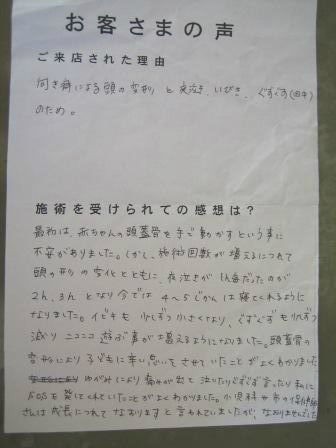 お客さまの声
ご来店された理由
向き癖による頭の変形と夜泣き、いびき、ぐずぐず(日中)
のため。
施術を受けられての感想は？
最初は、赤ちゃんの頭蓋骨を手で動かすという事に
不安がありました。しかし、施術回数が増えるにつれて
頭の形の変化とともに、夜泣きが 1h毎だったのが
2h、3h となり今では 4〜5じかんは寝てくれるように
なりました。イビキも 少しずつ小さくなり、ぐずぐずも少しずつ
減り ニコニコ 遊ぶ事が増えるようになりました。頭蓋骨の
変形により 子どもに辛い思いをさせていたことがよくわかりました
ゆがみにより 痛みが出て 泣いたりぐずぐず言ったり 私に
SOSを発してくれていたことがよくわかりました。小児科や市の保健師
さんは成長につれて なおりますと言われていましたが、なおりませんでした